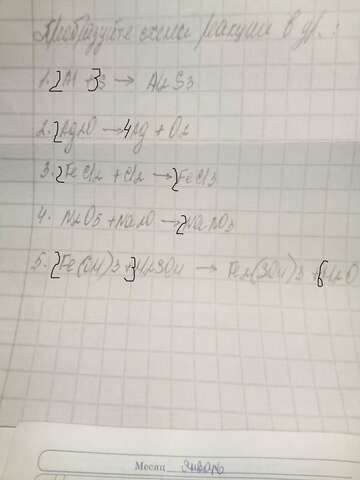 Преобразуйте схемы реакции в ур. :
1. 2Al + 3S → Al2S3
2. 2Ag2O → 4Ag + O2
3. 2FeCl2 + Cl2 → 2FeCl3
4. N2O5 + Na2O → 2NaNO3
5. 2Fe(OH)3 + 3H2SO4 → Fe2(SO4)3 + 6H2O
Месяц январь